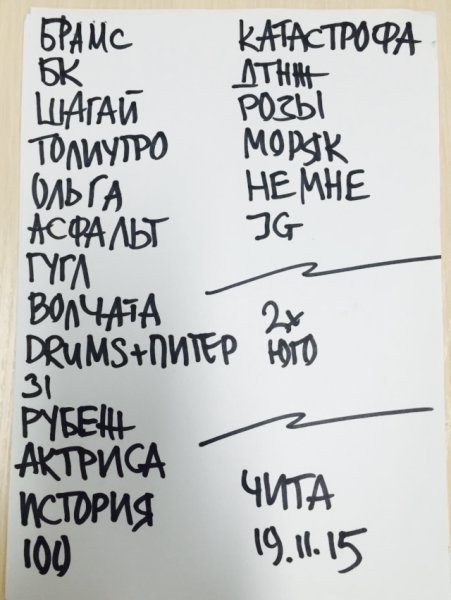 БРАМС
БК
ШАГАЙ
ТОЛИУТРО
ОЛЬГА
АСФАЛЬТ
ГУГЛ
ВОЛЧАТА
DRUMS+ПИТЕР
31
РУБЕЖ
АКТРИСА
ИСТОРИЯ
100
КАТАСТРОФА
ДТНЖ
РОЗЫ
МОРЯК
НЕ МНЕ
JG
2х
ЮГО
ЧИТА
19.11.15